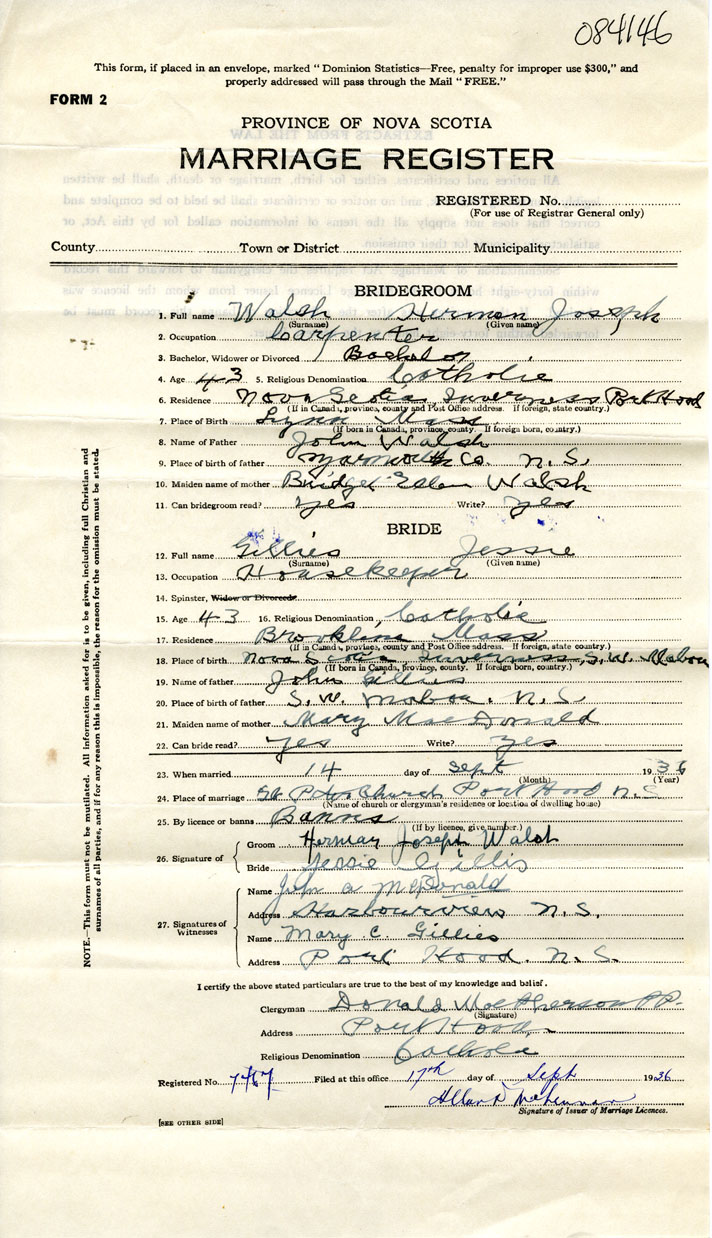 084146
This form, if placed in an envelope, marked "Dominion Statistics—Free, penalty for improper use $300," and
properly addressed will pass through the Mail "FREE."
FORM 2
PROVINCE OF NOVA SCOTIA
MARRIAGE REGISTER
REGISTERED No.
(For use of Registrar General only)
County Town or District Municipality
BRIDEGROOM
1. Full name Walsh Herman Joseph
(Surname) (Given name)
2. Occupation Carpenter
3. Bachelor, Widower or Divorced Bachelor
4. Age 43 5. Religious Denomination Catholic
6. Residence Nova Scotia Inverness Port Hood
(If in Canada, province, county and Post Office address. If foreign, state country.)
7. Place of Birth Lynn Mass
(If born in Canada, province, county. If foreign born, country.)
8. Name of Father John Walsh
9. Place of birth of father Yarmouth Co. N.S.
10. Maiden name of mother Bridget Ellen Walsh
11. Can bridegroom read? yes Write? yes
BRIDE
12. Full name Gillies Jessie
(Surname) (Given name)
13. Occupation Housekeeper
14. Spinster, Widow or Divorced
15. Age 43 16. Religious Denomination Catholic
17. Residence Brookline Mass
(If in Canada, province, county and Post Office address. If foreign, state country.)
18. Place of birth Nova Scotia Inverness, S.W. Mabou
(If born in Canada, province, county. If foreign born, country.)
19. Name of father John Gillies
20. Place of birth of father S. W. Mabou. N.S
21. Maiden name of mother Mary MacDonald
22. Can bride read? yes Write? yes
23. When married 14 day of Sept 1936
(Month) (Year)
24. Place of marriage St Peters Church Port Hood N.S
(Name of church or clergyman's residence or location of dwelling house)
25. By licence or banns Banns
(If by licence, give number.)
26. Signature of
Groom Herman Joseph Walsh
Bride Jessie Gillis
27. Signatures of Witnesses
Name John A McDonald
Address Harbourview N.S.
Name Mary C. Gillies
Address Port Hood. N.S.
I certify the above stated particulars are true to the best of my knowledge and belief.
Clergyman Donald MacPherson PP.
(Signature)
Address Port Hood
Religious Denomination Catholic
Registered No. Filed at this office 17th day of Sept 1936
Signature of Issuer of Marriage Licences.
[SEE OTHER SIDE]
NOTE.—This form must not be mutilated. All information asked for is to be given, including full Christian and
surnames of all parties, and if for any reason this is impossible, the reason for the omission must be stated.